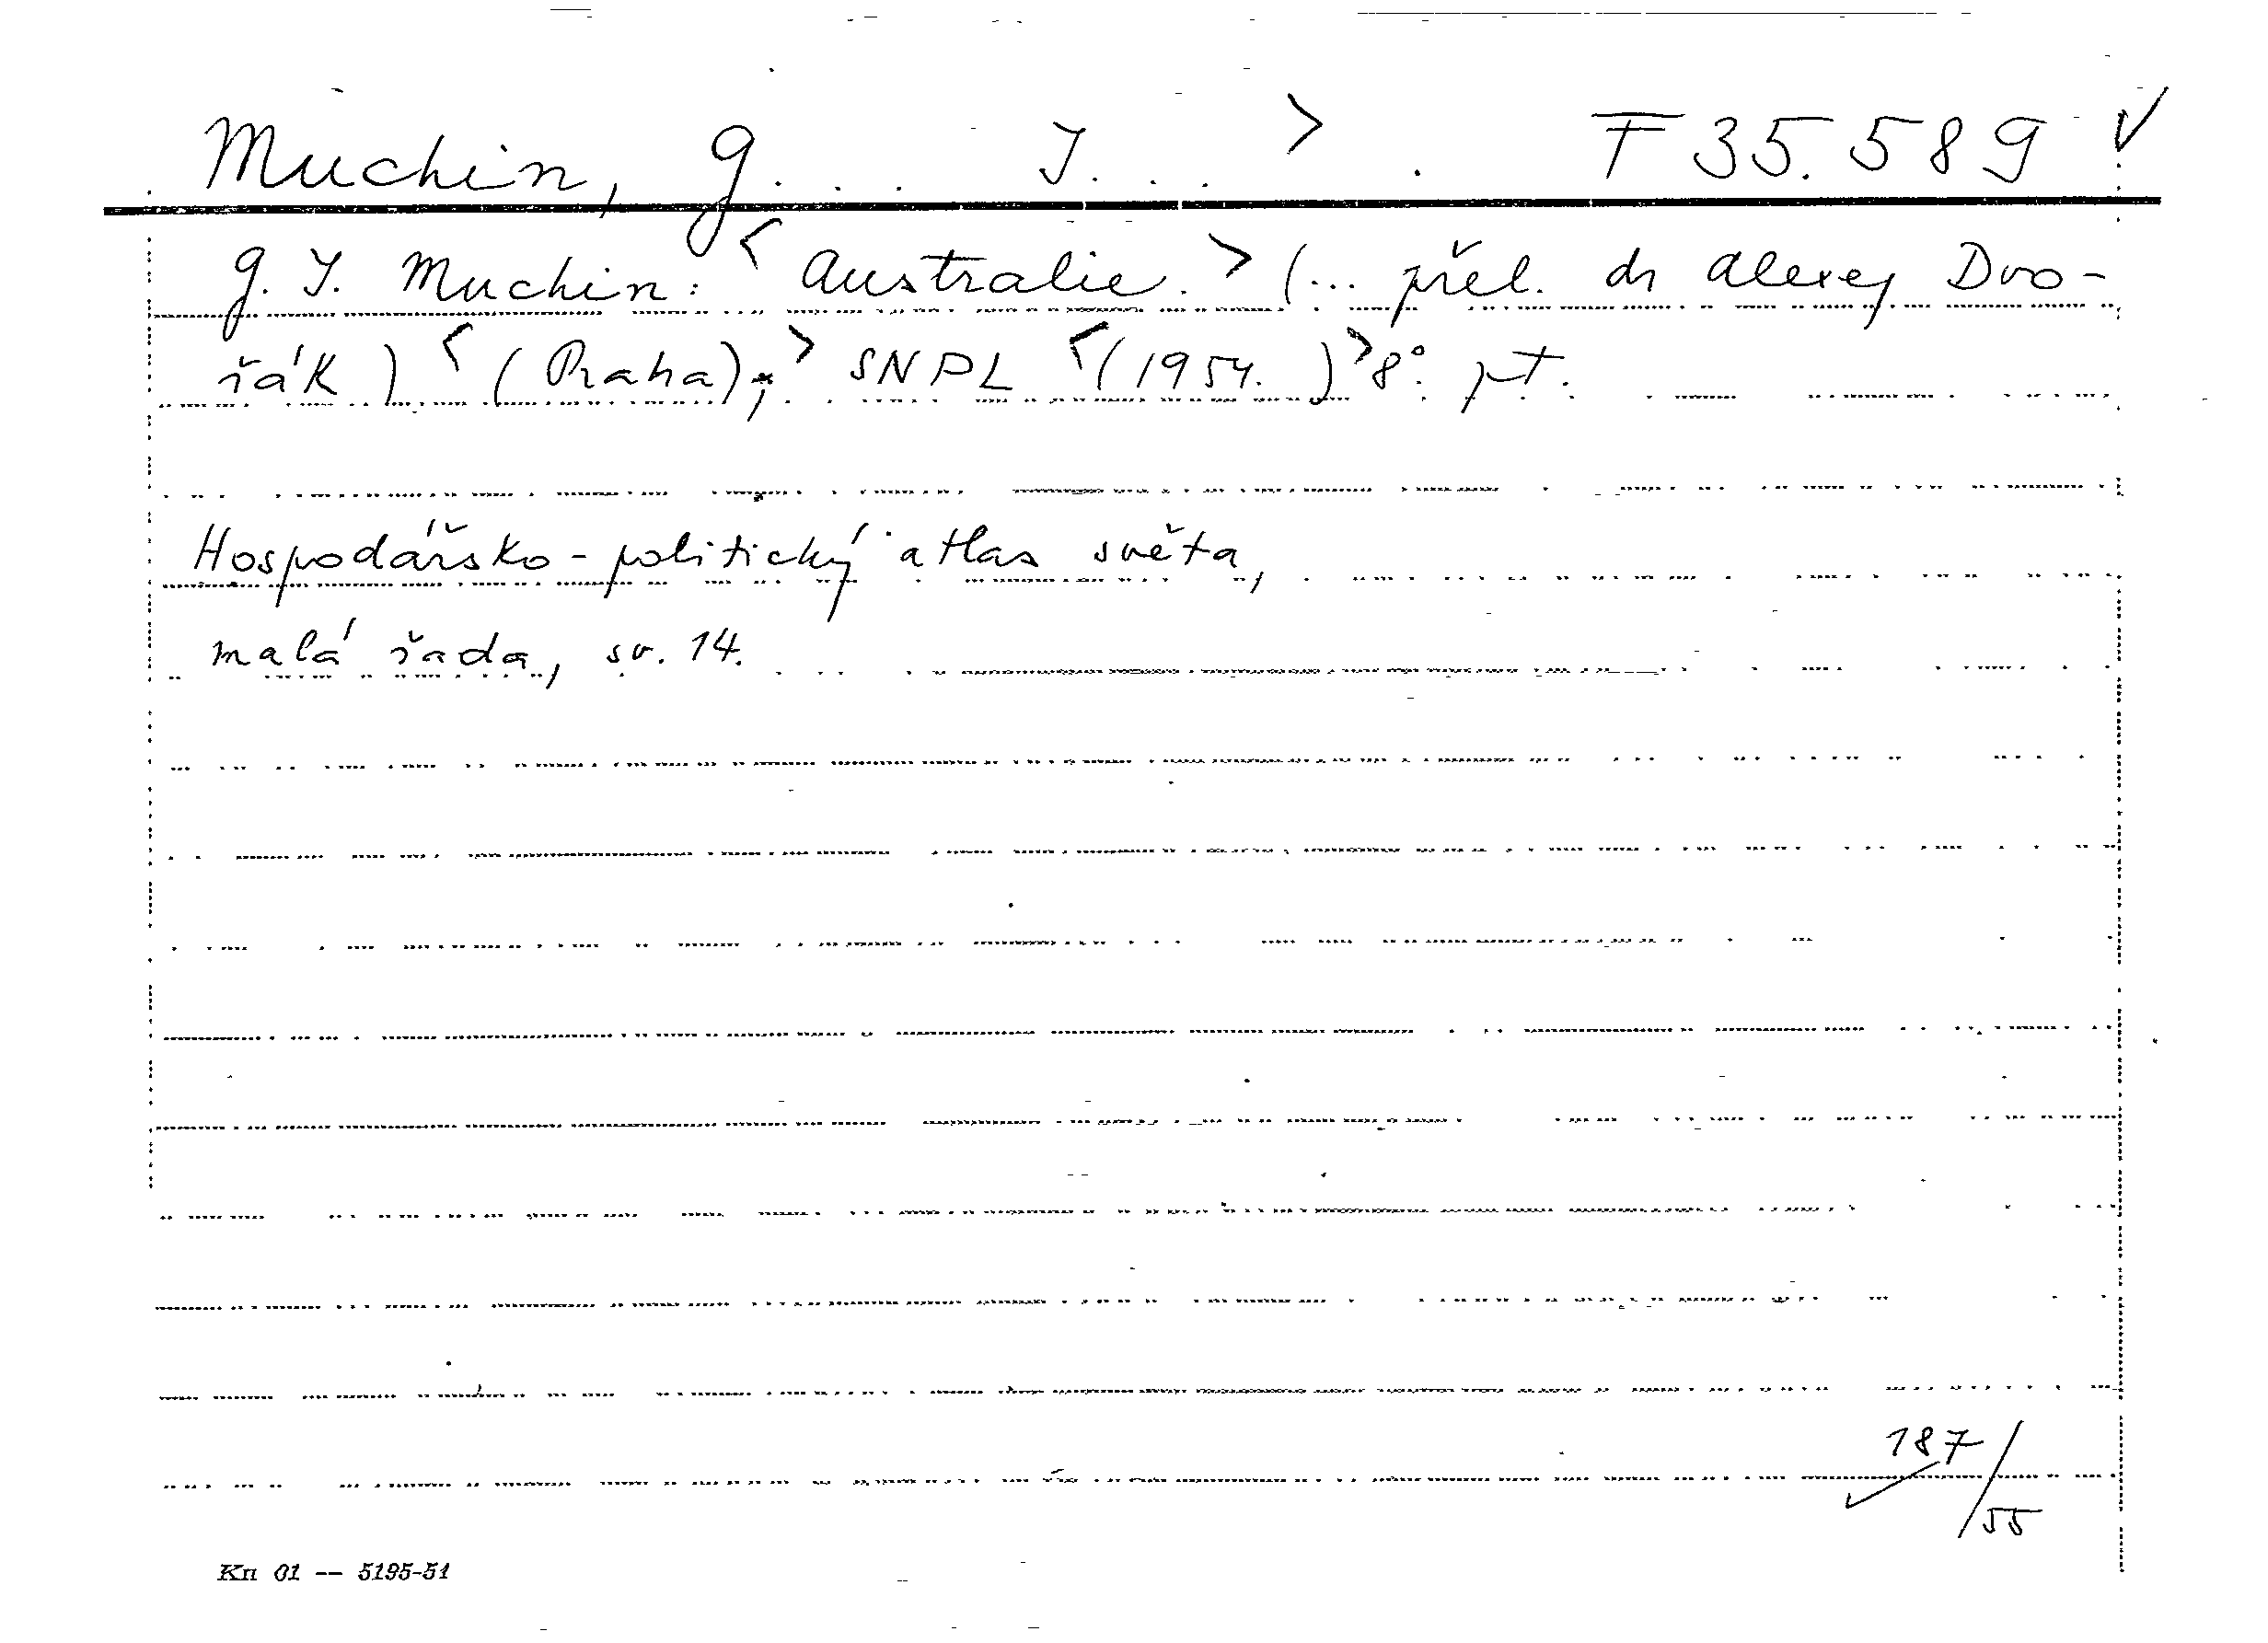 Muchin, G... I... > . F 35.589 ✓
G. I. Muchin: <Australie.> (... přel. dr Alexej Dvo-
řák) <(Praha);> SNPL <(1954.)> 8°. pt.
Hospodářsko-politický atlas světa,
malá řada, sv. 14.
187/55
Kn 01 -- 5195-51